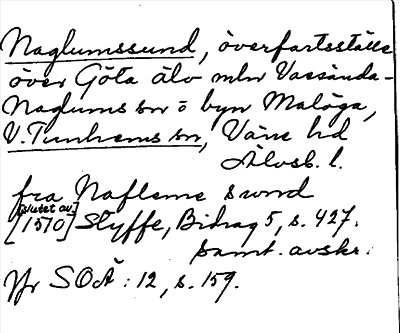 Naglumssund, överfartsställe
över Göta älv mln Vassända-
Naglums sn o byn Malöga,
V. Tunhems sn, Väne hd
Älvsb. l.
fra Nafleme swnd
[slutet av
1510] Styffe, Bidrag 5, s. 427.
samt. avskr.
Jfr SOÄ: 12, s. 159.